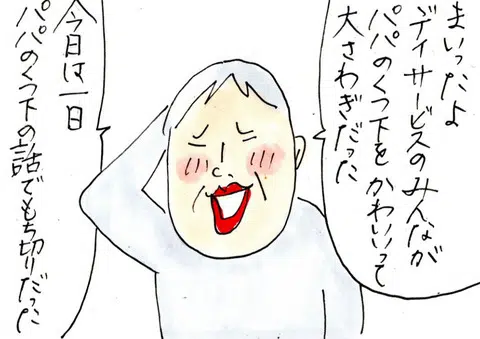 まいったよ
デイサービスのみんなが
パパのくつ下をかわいいって
大さわぎだった
今日は一日
パパのくつ下の話でもち切りだった